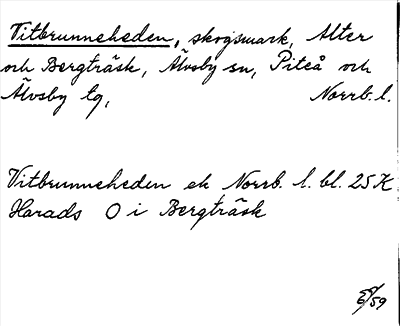 Vitbrunneheden, skogsmark, Alter
och Bergträsk, Älvsby sn, Piteå och
Älvsby tg, Norrb. l.
Vitbrunneheden ek Norrb. l. bl. 25 K
Harads O i Bergträsk
/59